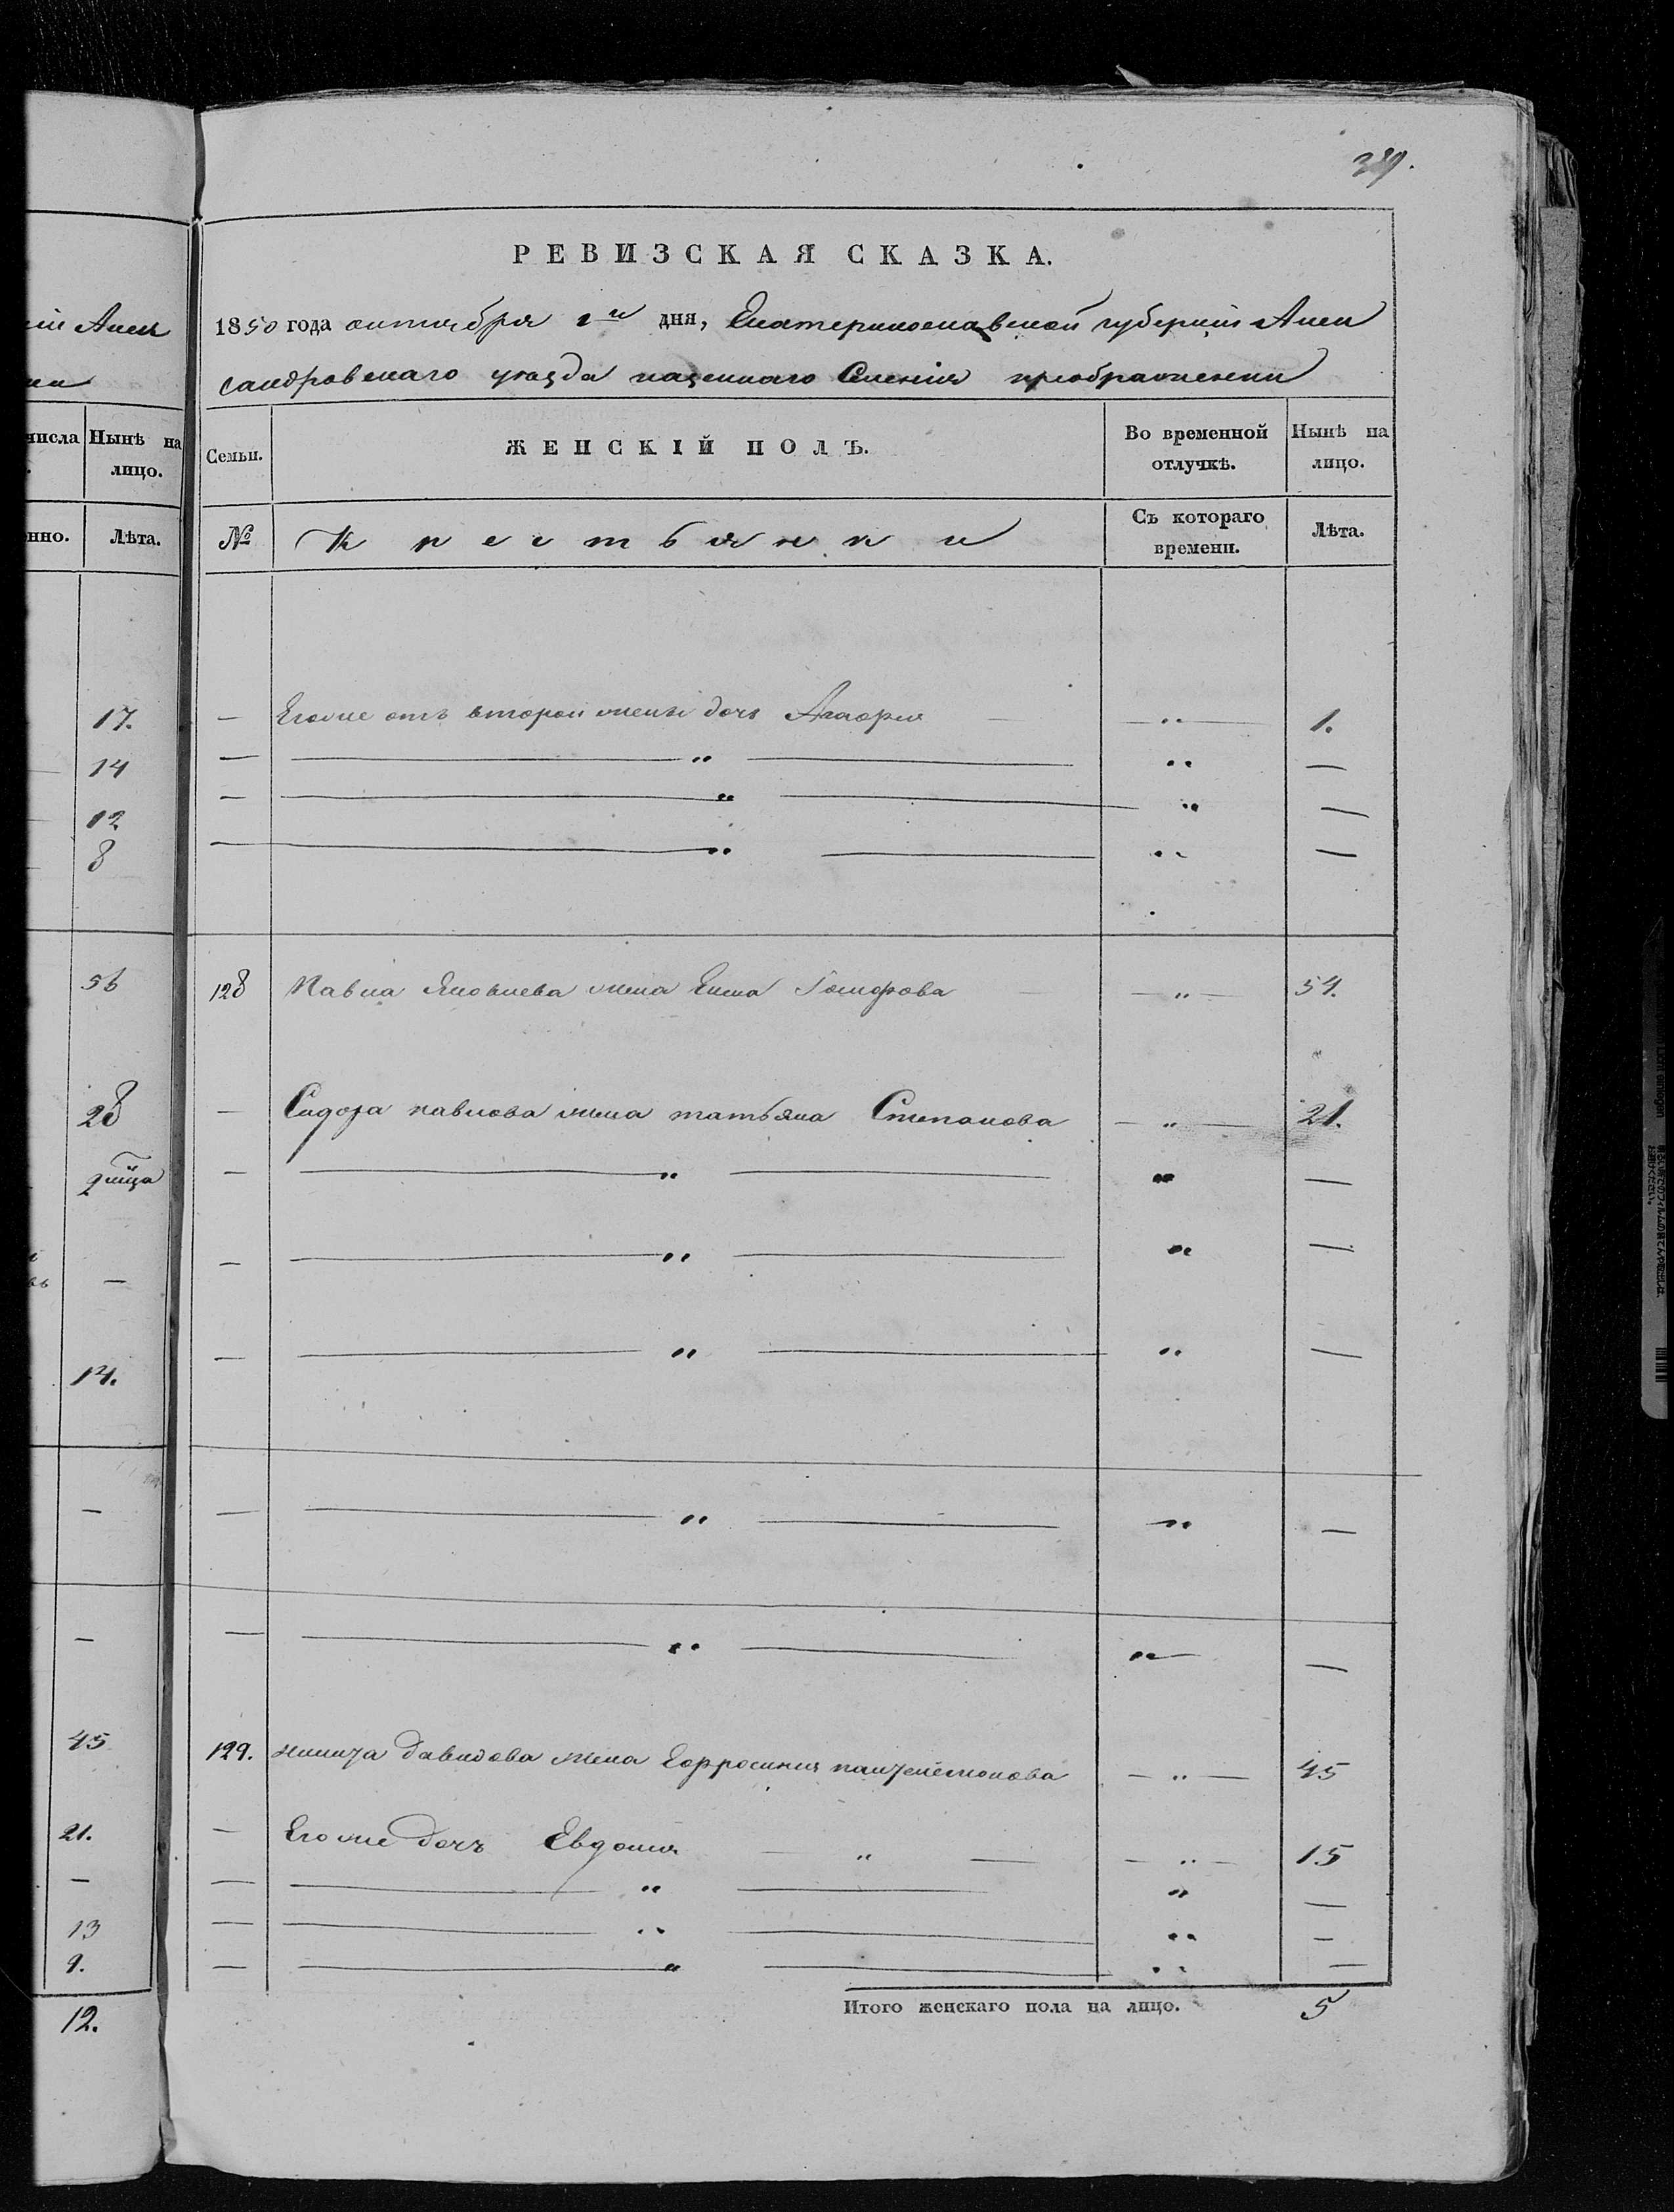 389.
РЕВИЗСКАЯ СКАЗКА.
1850 года октября 1го дня, Екатеринославской губерніи Алек
сандровскаго уезда казеннаго Селенія преображенки
Семьи.
ЖЕНСКІЙ ПОЛЪ.
Во временной отлучкѣ.
Нынѣ на лицо.
№
Крестьянки
Съ котораго времени.
Лѣта.
— Егоже отъ второй жены дочь Агафия — „ — 1.
128 Павла Яковлева жена Елена — „ — 54.
— Сидора павлова жена татьяна Степанова — „ — 21.
129. давидова жена Ефросиния пантелемонова — „ — 45
— Егоже дочь Евдокия — „ — — „ — 15
Итого женскаго пола на лицо. 5
ній Алек
числа
Нынѣ на лицо.
нно.
Лѣта.
17.
14
12
8
56
28
14.
45
21.
—
13
9.
12.